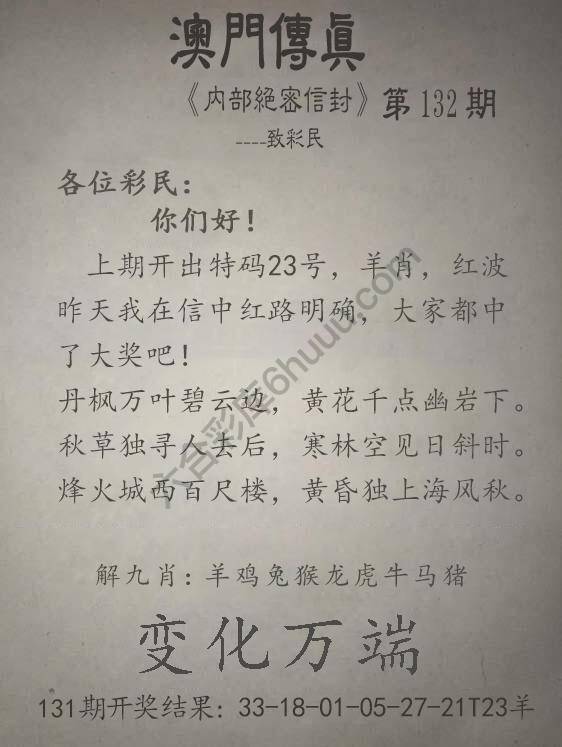 澳門傳真
《内部絕密信封》第132期
----致彩民
各位彩民：
你们好！
上期开出特码23号，羊肖，红波
昨天我在信中红路明确，大家都中
了大奖吧！
丹枫万叶碧云边，黄花千点幽岩下。
秋草独寻人去后，寒林空见日斜时。
烽火城西百尺楼，黄昏独上海风秋。
解九肖：羊鸡兔猴龙虎牛马猪
变化万端
131期开奖结果：33-18-01-05-27-21T23羊
六合彩库6huuu.com